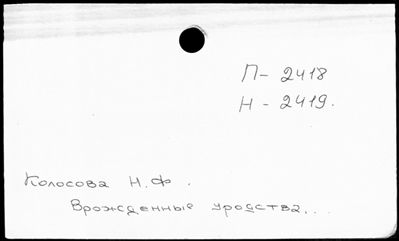 П - 2418
Н - 2419.
Колосова Н.Ф.
Врожденные уродства...